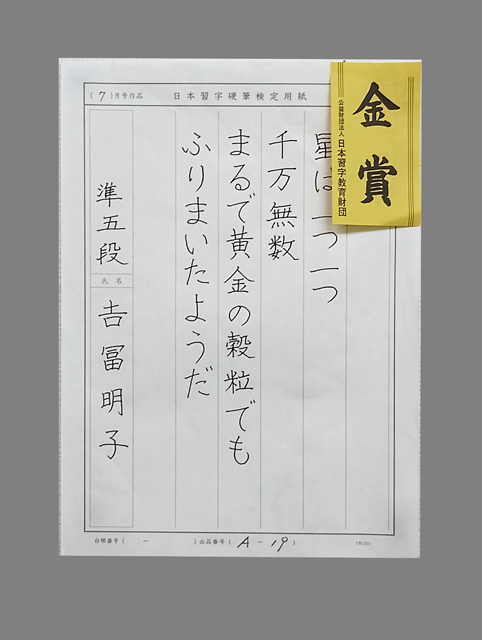 (7)月号作品 日本習字硬筆検定用紙
金賞
公益財団法人 日本習字教育財団
星は一つ一つ
千万無数
まるで黄金の穀粒でも
ふりまいたようだ
準五段
氏名
吉冨明子
台帳番号( － )出品番号(A－19)